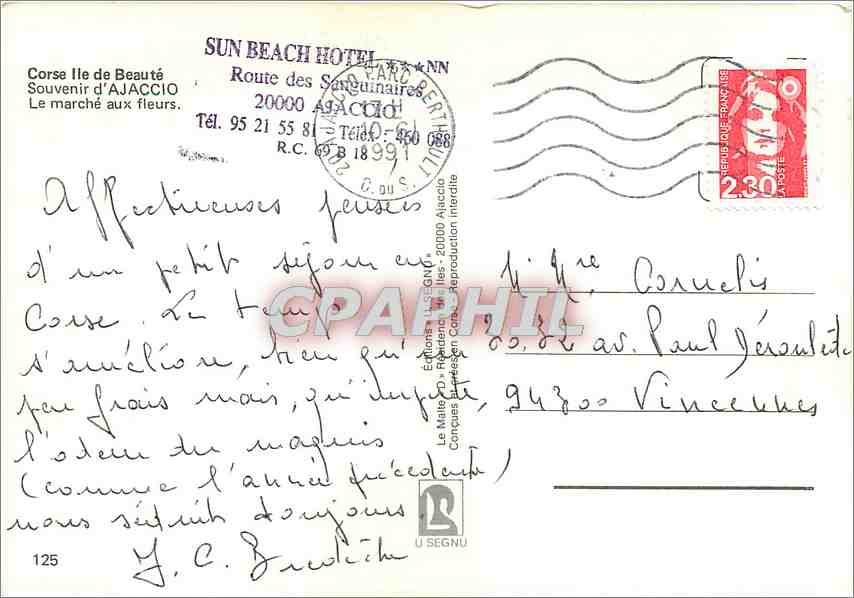 Corse Ile de Beauté
Souvenir d'AJACCIO
Le marché aux fleurs.
SUN BEACH HOTEL ★★★NN
Route des Sanguinaires
20000 AJACCIO
Tél. 95 21 55 81 - Télex : 460 088
R.C. 69 B 18
20 AJACCIO PARC BERTHAULT
17 H
10-6
1991
C. DU S.
RÉPUBLIQUE FRANÇAISE
2,30
LA POSTE
Affectueuses pensées
d'un petit séjour en
Corse. Le temps
s'améliore, bien qu'un
peu frais mais, qu'importe,
l'odeur du maquis
(comme l'année précédente)
nous séduit toujours.
J. C.
M. Mre Cornelis
30.32 av. Paul Déroulède
94300 Vincennes
Éditions « U SEGNU »
Le Malte « D » Résidence des Iles - 20000 Ajaccio
Conçues et créées en Corse - Reproduction interdite
CPAPHIL
U SEGNU
125